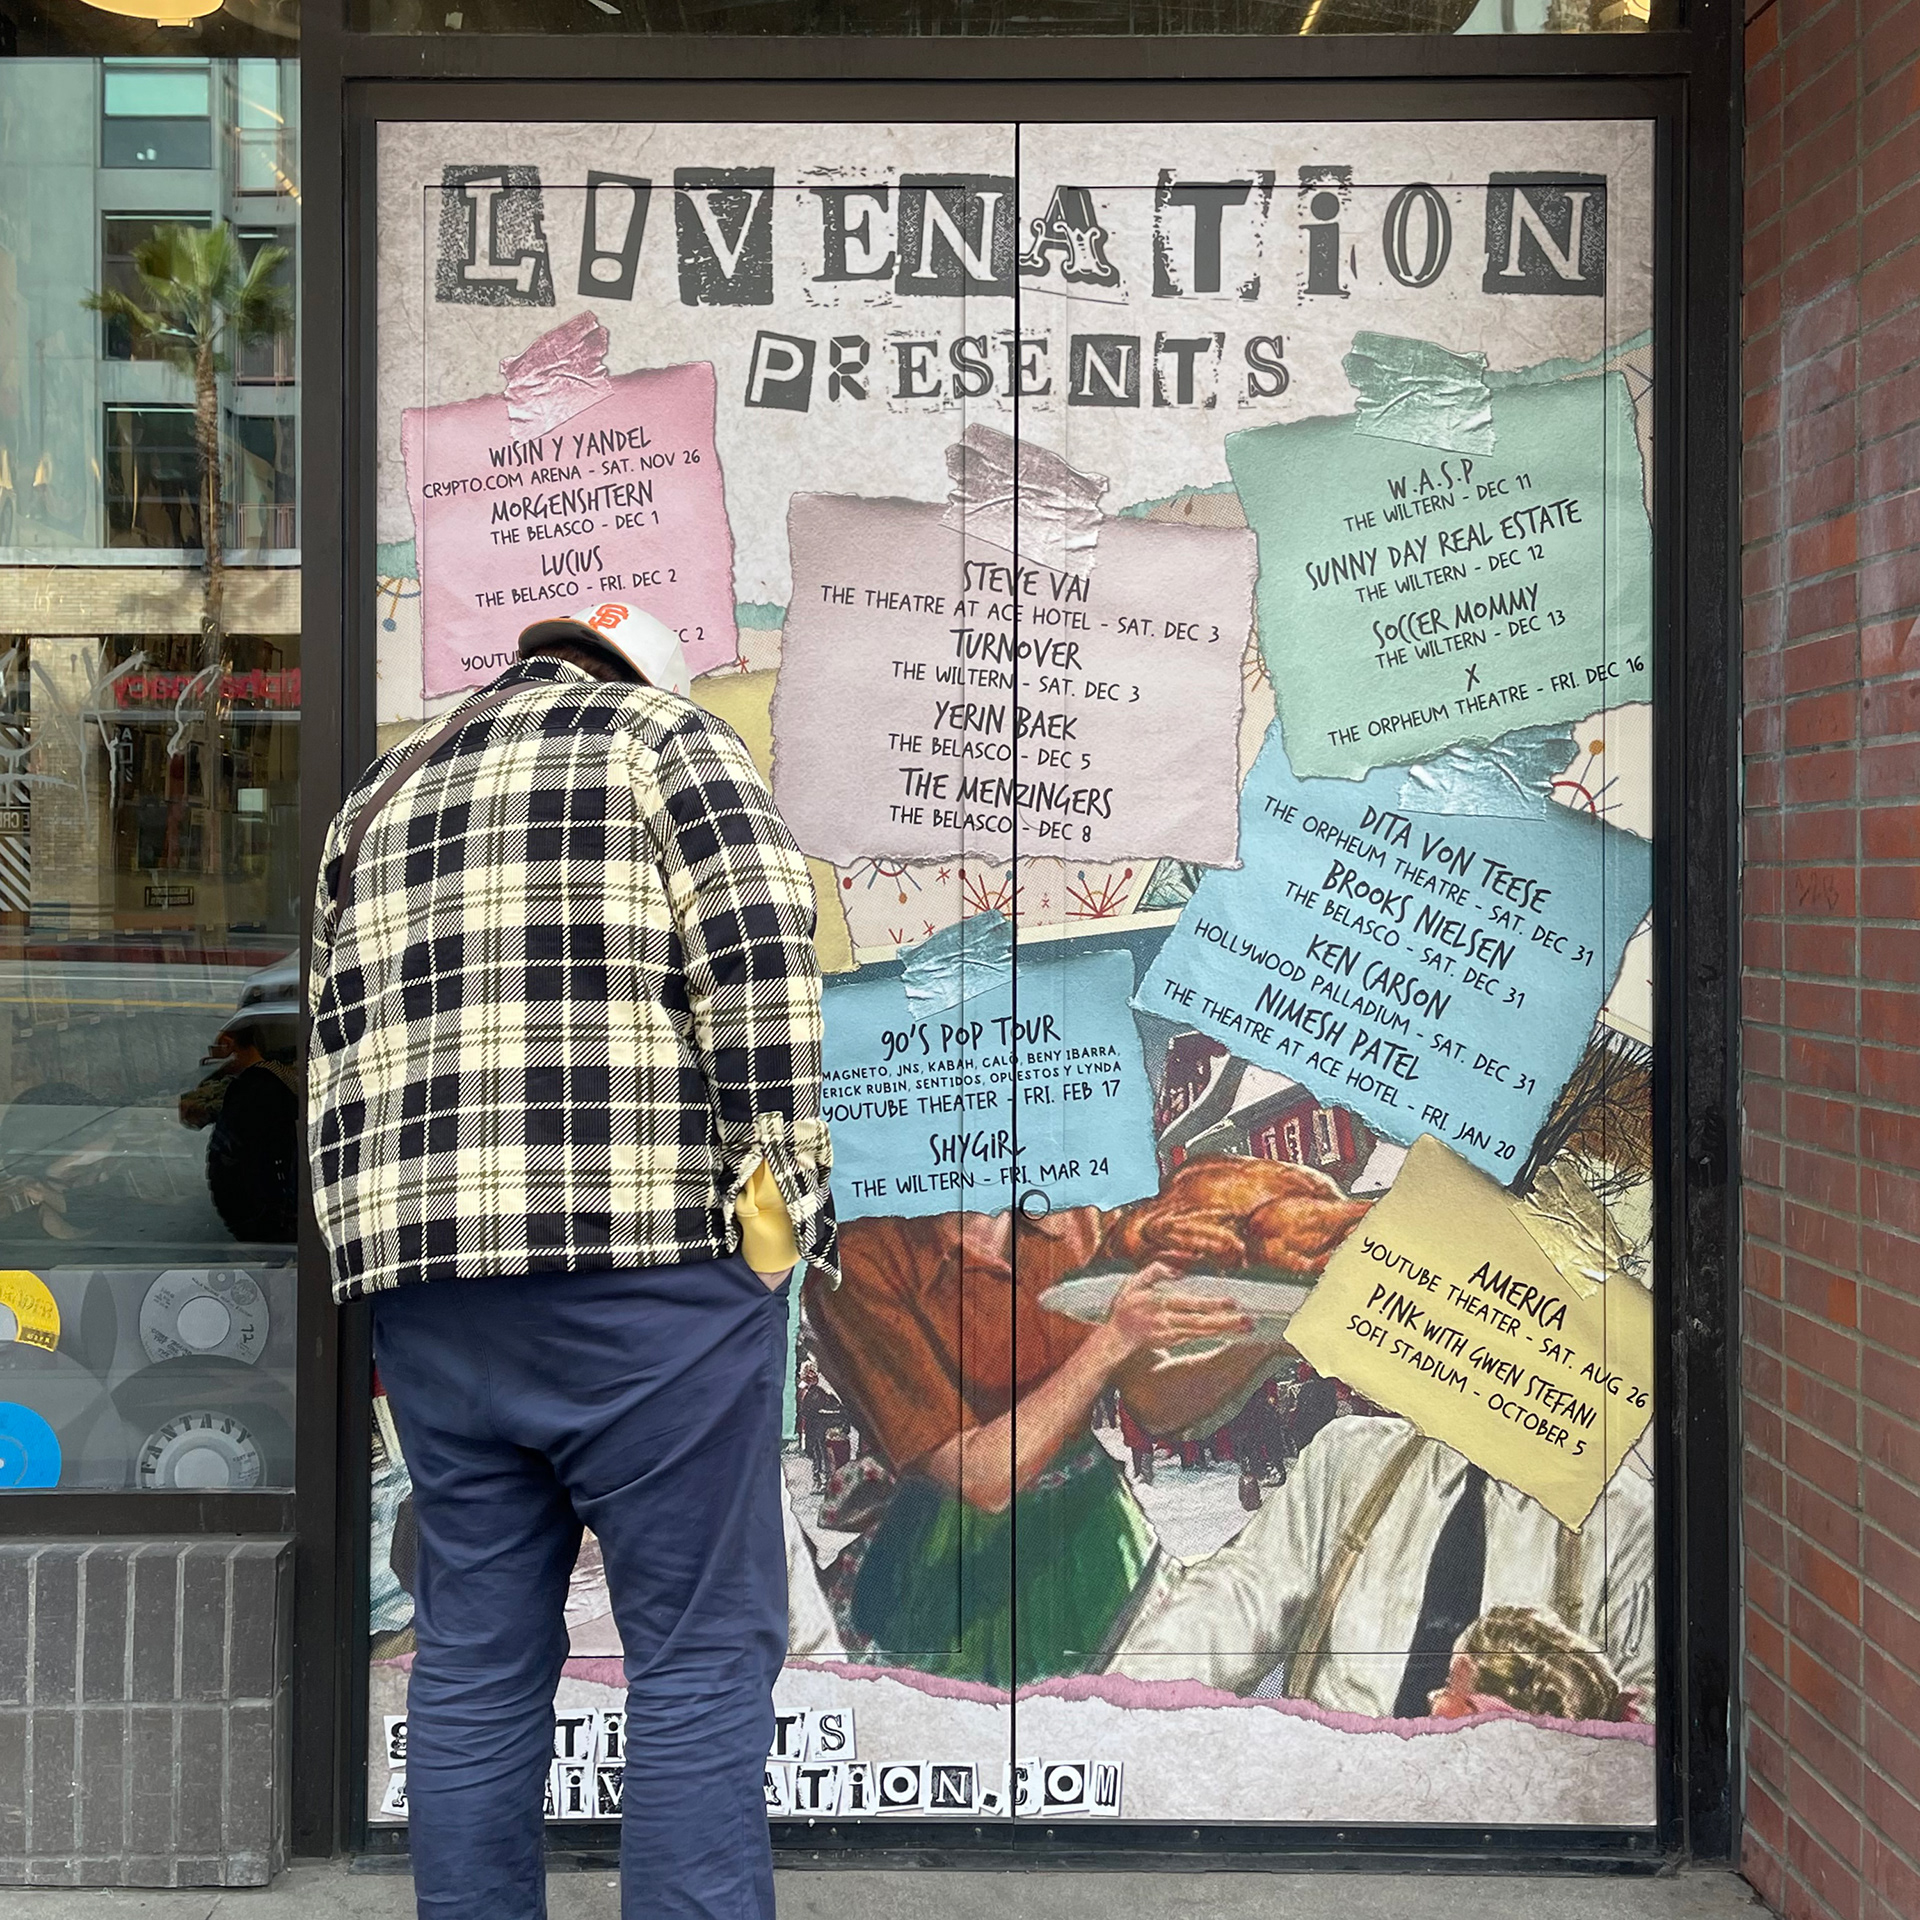 L!VENATiON
PRESENTS
WISIN Y YANDEL
CRYPTO.COM ARENA - SAT. NOV 26
MORGENSHTERN
THE BELASCO - DEC 1
LUCIUS
THE BELASCO - FRI. DEC 2
2
STEVE VAI
THE THEATRE AT ACE HOTEL - SAT. DEC 3
TURNOVER
THE WILTERN - SAT. DEC 3
YERIN BAEK
THE BELASCO - DEC 5
THE MENZINGERS
THE BELASCO - DEC 8
W.A.S.P
THE WILTERN - DEC 11
SUNNY DAY REAL ESTATE
THE WILTERN - DEC 12
SOCCER MOMMY
THE WILTERN - DEC 13
X
THE ORPHEUM THEATRE - FRI. DEC 16
DITA VON TEESE
THE ORPHEUM THEATRE - SAT. DEC 31
BROOKS NIELSEN
THE BELASCO - SAT. DEC 31
KEN CARSON
HOLLYWOOD PALLADIUM - SAT. DEC 31
NIMESH PATEL
THE THEATRE AT ACE HOTEL - FRI. JAN 20
90'S POP TOUR
MAGNETO, JNS, KABAH, CALO, BENY IBARRA,
ERICK RUBIN, SENTIDOS, OPUESTOS Y LYNDA
YOUTUBE THEATER - FRI. FEB 17
SHYGIRL
THE WILTERN - FRI. MAR 24
AMERICA
YOUTUBE THEATER - SAT. AUG 26
P!NK WITH GWEN STEFANI
SOFI STADIUM - OCTOBER 5
SF
FANTASY
.COM